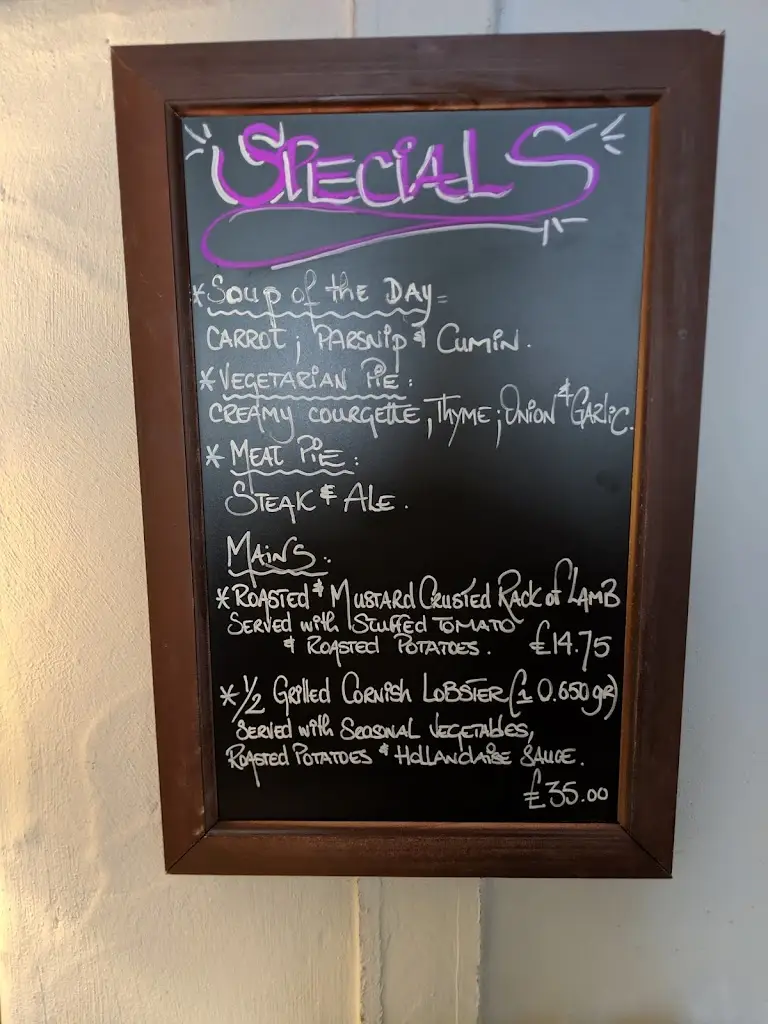 SPECIALS
*Soup of the DAY=
CARROT; PARSNIP & CUMIN.
*VEGETARIAN PIE:
CREAMY COURGETTE, THYME; ONION & GARLIC.
* MEAT PIE:
STEAK & ALE.
MAINS:
*ROASTED & MUSTARD CRUSTED RACK OF LAMB
SERVED with STUFFED TOMATO
& ROASTED POTATOES. £14.75
*1/2 GRILLED CORNISH LOBSTER (1 0.650gr)
SERVED with SEASONAL VEGETABLES,
ROASTED POTATOES & HOLLANDAISE SAUCE.
£35.00